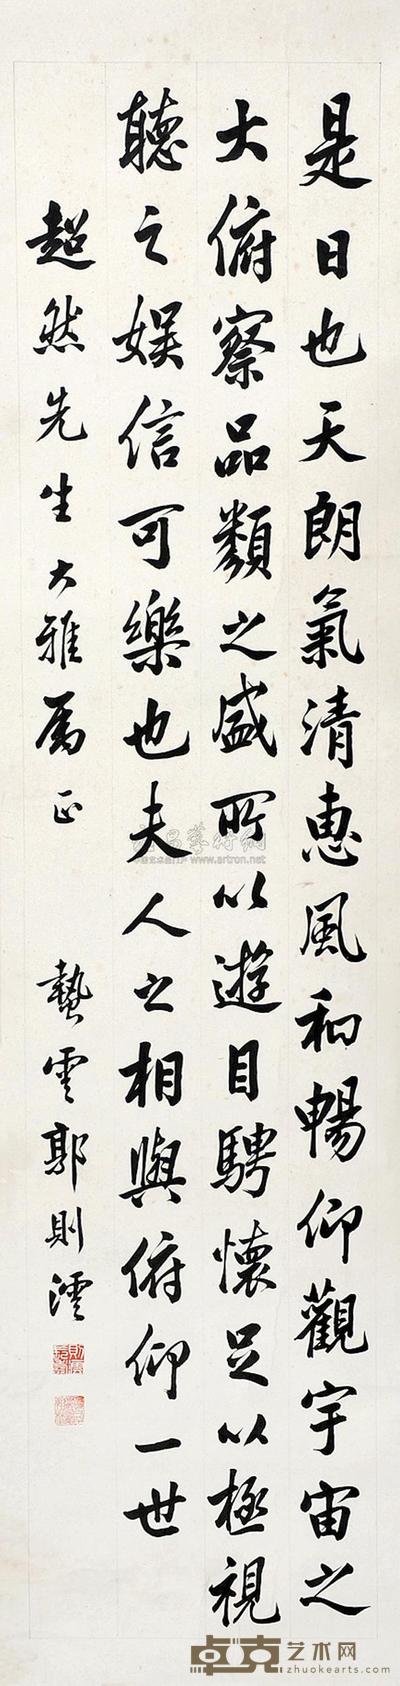 是日也天朗氣清惠風和暢仰觀宇宙之
大俯察品類之盛所以遊目騁懷足以極視
聽之娛信可樂也夫人之相與俯仰一世
超然先生大雅属正
蟄雲郭則澐
www.artron.net
卓克艺术网
zhuokearts.com